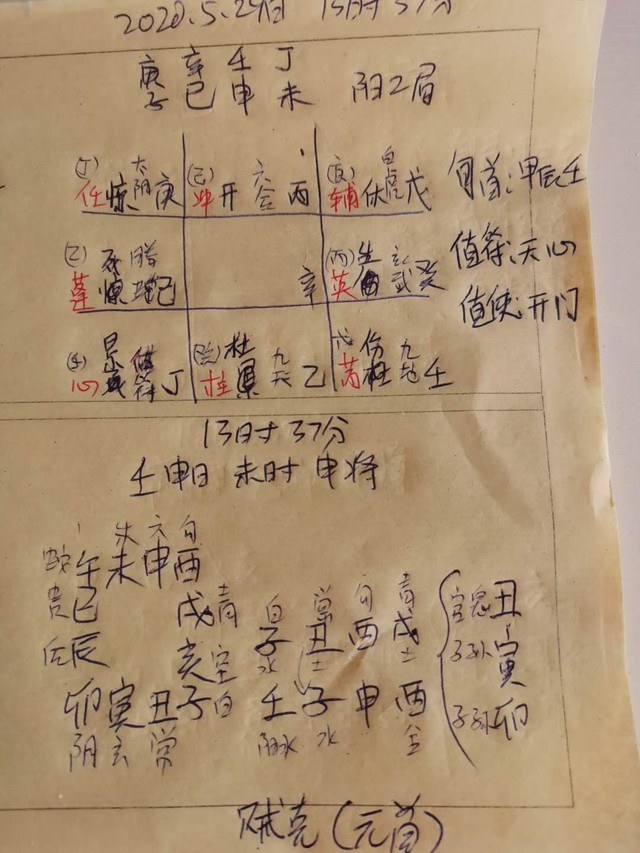 2020.5.29日 13时37分
庚 辛 壬 丁
子 巳 申 未 阳二局
(丁) 太 (己) 六 (辛) 白
任 惊 阴 庚 冲 开 合 丙 辅 休 虎 戊 旬首:甲辰壬
(乙) 死 腾 (丙) 生 玄
蓬 惊 蛇 己 辛 英 武 癸 值符:天心
值使:开门
值 杜 九 伤 九
心 符 丁 柱 天 乙 芮 杜 地 壬
13时37分
壬申日 未时 申将
朱 六 勾
蛇 午 未 申 酉
贵 巳 戌 青 白 常 勾 青 官鬼 丑
后 辰 亥 空 子 丑 酉 戌 子孙 寅
水 土 土
卯 寅 丑 子 白 壬 子 申 酉 子孙 卯
阴 玄 常 阳水 水 金
贼克(元首)